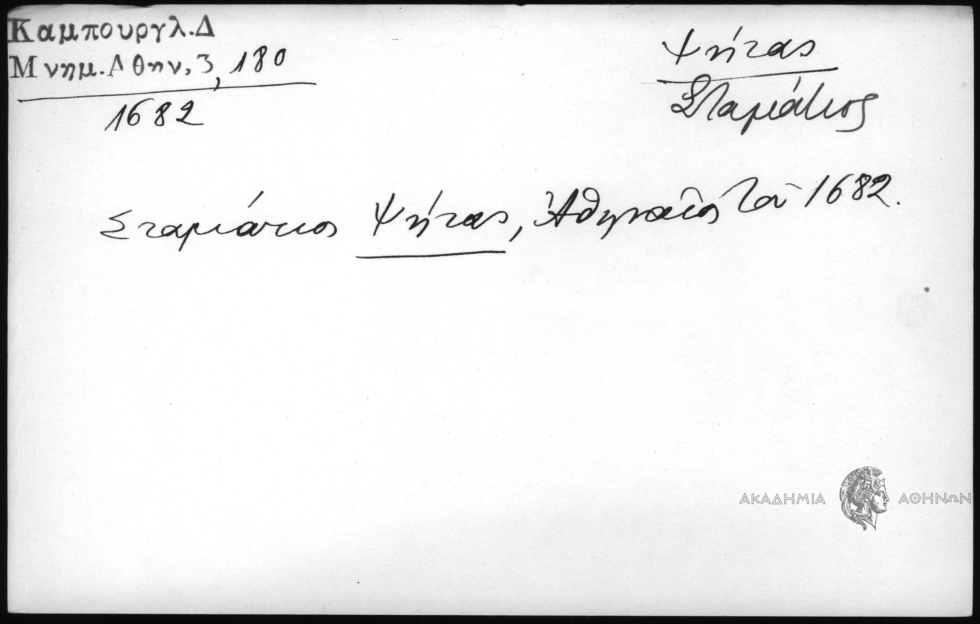 Καμπουργλ.Δ
Μνημ.Αθην, 3, 180
1682
Ψήτας
Σταμάτιος
Σταμάτιος Ψήτας, Ἀθηναῖος τοῦ 1682.
ΑΚΑΔΗΜΙΑ ΑΘΗΝΩΝ